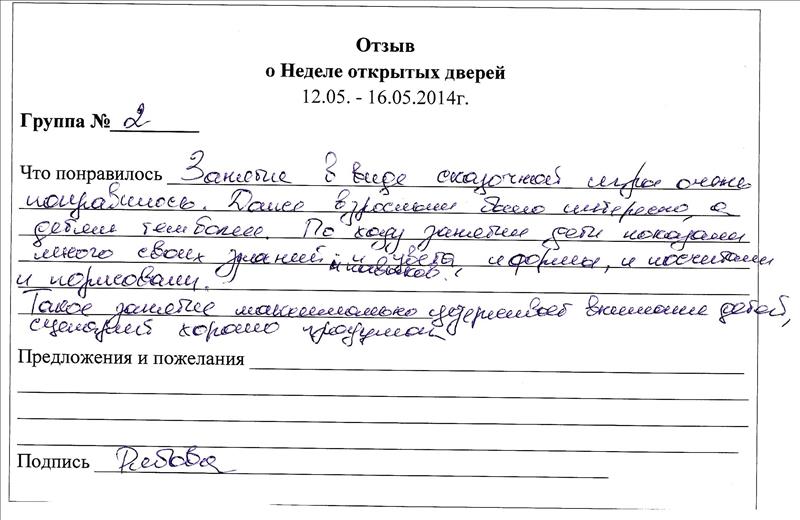 Отзыв
о Неделе открытых дверей
12.05. - 16.05.2014г.
Группа № 2
Что понравилось Занятие в виде сказочной игры очень
понравилось. Даже взрослым было интересно, а
детям тем более. По ходу занятия дети показали
много своих знаний и навыков: и цвета и формы, и посчитали
и порисовали.
Такое занятие максимально удерживает внимание детей,
сценарий хорошо продуман
Предложения и пожелания
Подпись